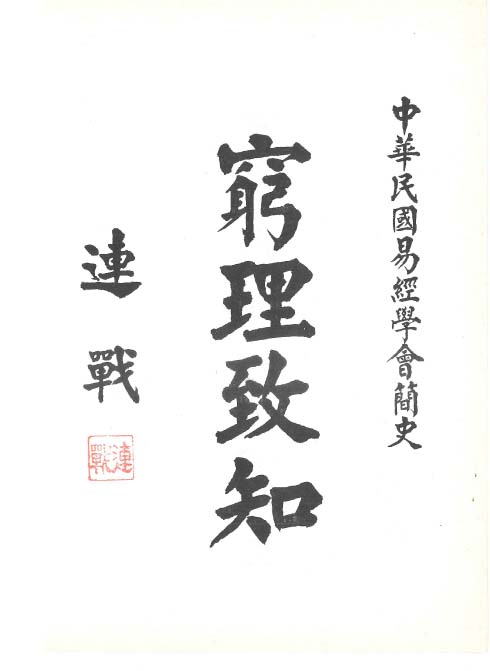 中華民國易經學會簡史
窮理致知
連戰
連戰